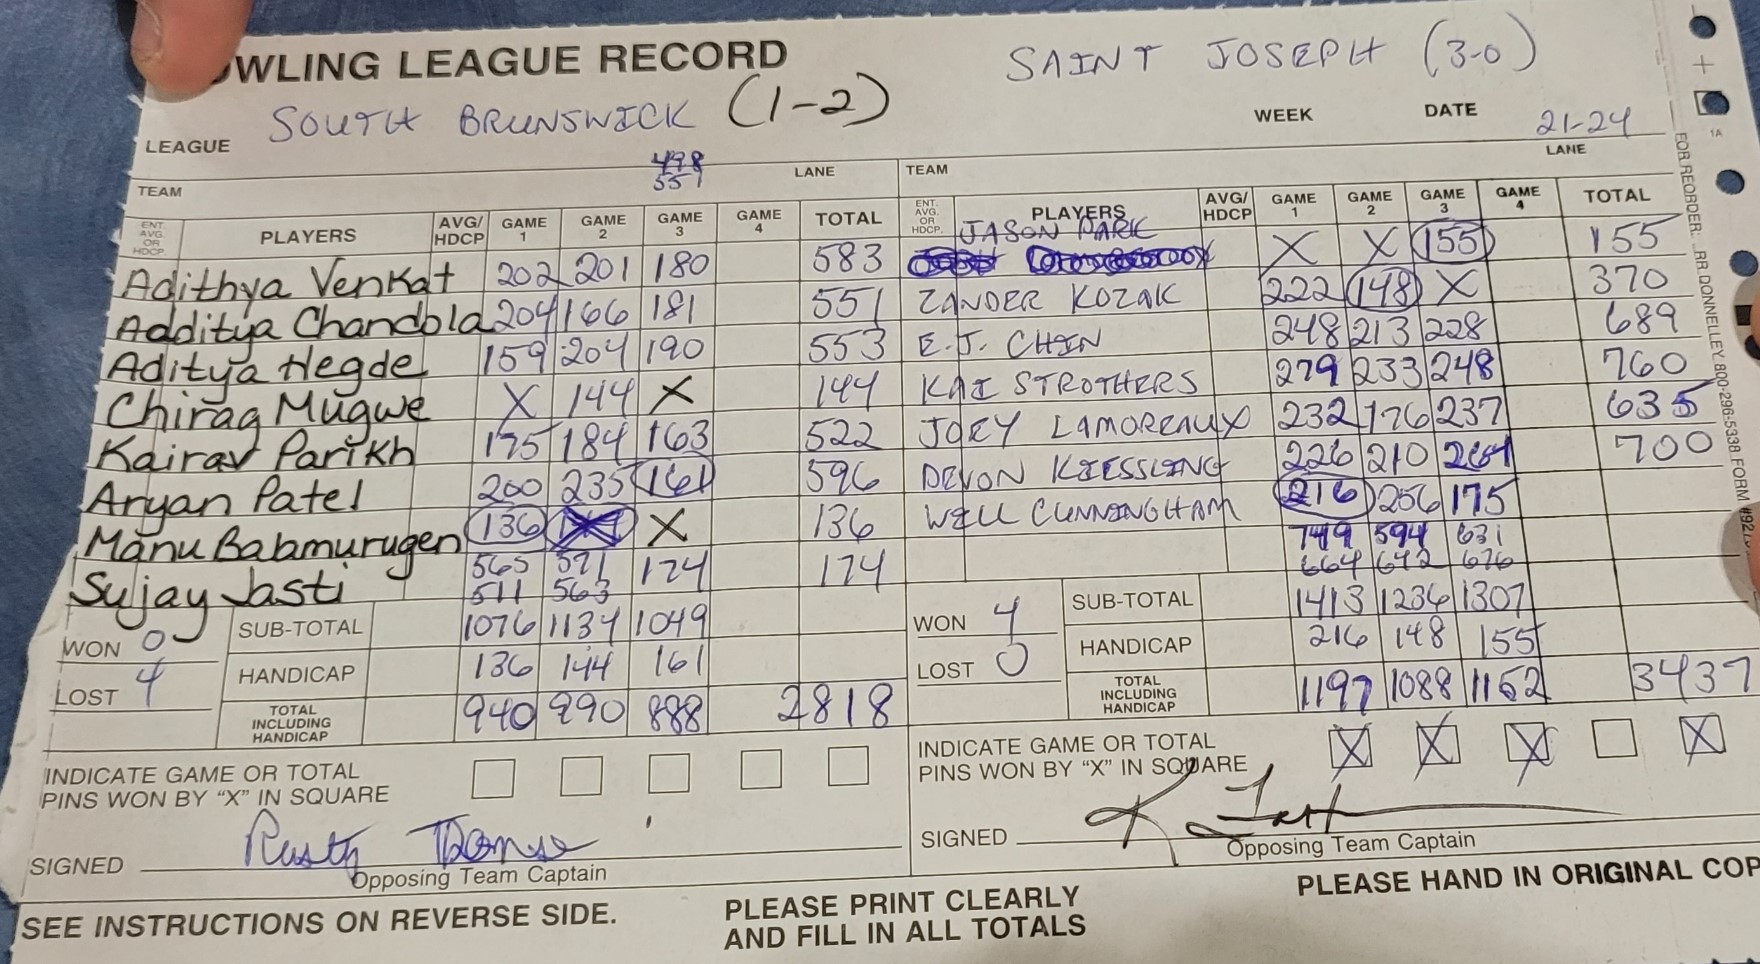 WLING LEAGUE RECORD
SAINT JOSEPH (3-0)
SOUTH BRUNSWICK (1-2)
LEAGUE
WEEK DATE
21-24
498
557
TEAM LANE TEAM LANE
ENT. AVG. OR HDCP. PLAYERS AVG/HDCP GAME 1 GAME 2 GAME 3 GAME 4 TOTAL ENT. AVG. OR HDCP. PLAYERS AVG/HDCP GAME 1 GAME 2 GAME 3 GAME 4 TOTAL
JASON PARK X X 155 155
Adithya Venkat 202 201 180 583
ZANDER KOZAK 222 148 X 370
Additya Chandola 204 166 181 551
E.J. CHIN 248 213 228 689
Aditya Hegde 159 204 190 553
KAI STROTHERS 279 233 248 760
Chirag Mugwe X 144 X 144
JOEY LAMOREAUX 232 176 237 635
Kairav Parikh 175 184 163 522
DEVON KIESSLING 226 210 264 700
Aryan Patel 200 235 161 596
WILL CUNNINGHAM 216 256 175
Manu Balamurugen 136 X 136
749 594 631
Sujay Jasti 174 174
565 571
511 563
664 642 676
WON 0 SUB-TOTAL 1076 1134 1049
WON 4 SUB-TOTAL 1413 1236 1307
LOST 4 HANDICAP 136 144 161
LOST 0 HANDICAP 216 148 155
TOTAL INCLUDING HANDICAP 940 990 888 2818
TOTAL INCLUDING HANDICAP 1197 1088 1152 3437
INDICATE GAME OR TOTAL
PINS WON BY "X" IN SQUARE
INDICATE GAME OR TOTAL
PINS WON BY "X" IN SQUARE X X X X
SIGNED
Opposing Team Captain
SIGNED
Opposing Team Captain
SEE INSTRUCTIONS ON REVERSE SIDE.
PLEASE PRINT CLEARLY
AND FILL IN ALL TOTALS
PLEASE HAND IN ORIGINAL COP
1A
FOR REORDER: RR DONNELLEY 800-296-5338 FORM